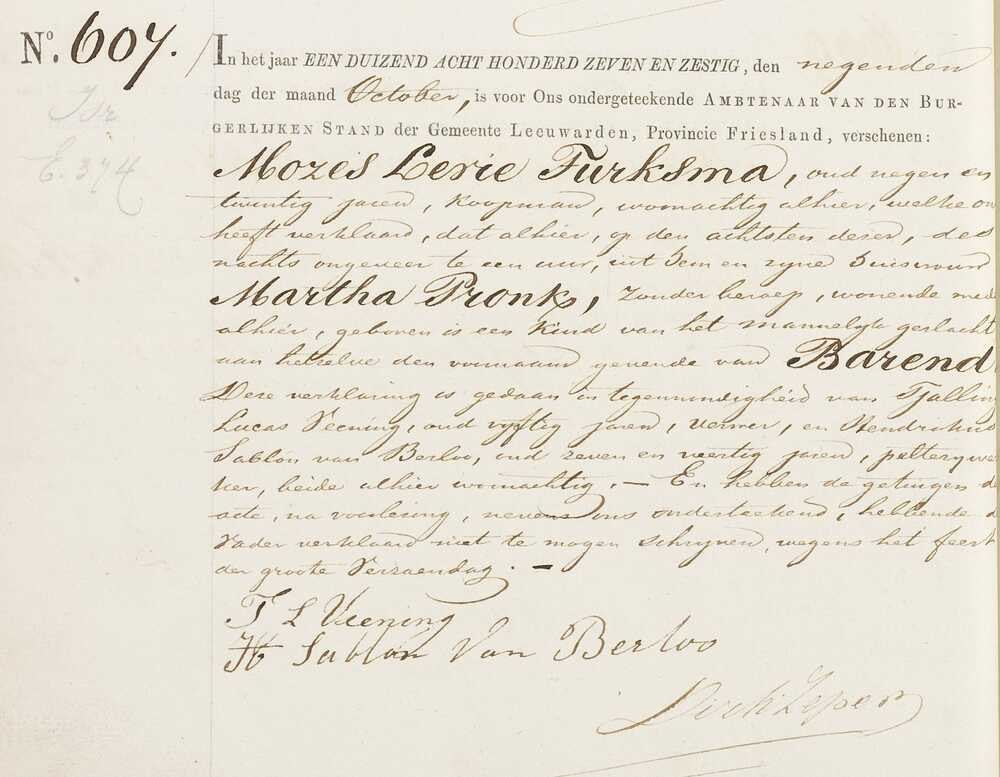 Nº. 607.
Isr
E. 374
In het jaar EEN DUIZEND ACHT HONDERD ZEVEN EN ZESTIG, den negenden
dag der maand October, is voor Ons ondergeteekende AMBTENAAR VAN DEN BUR-
GERLIJKEN STAND der Gemeente Leeuwarden, Provincie Friesland, verschenen:
Mozes Levie Turksma, oud negen en
twintig jaren, koopman, woonachtig alhier, welke on
heeft verklaard, dat alhier, op den achtsten dezer, des
nachts ongeveer te een uur, uit hem en zijne huisvrouw
Martha Pronk, zonder beroep, wonende mede
alhier, geboren is een kind van het mannelijk geslacht
aan hetzelve den voornaam gevende van Barend
Deze verklaring is gedaan in tegenwoordigheid van Tjalling
Lucas Veening, oud vijftig jaren, verwer, en Hendrikus
Sablon van Berloo, oud zeven en veertig jaren, pelterywer
ker, beide alhier woonachtig. — En hebben de getuigen d
acte, na voorlezing, nevens ons onderteekend, hebbende d
Vader verklaard niet te mogen schrijven, wegens het feest
der groote Verzoendag. —
T L Veening
H Sablon Van Berloo
Dirk Zeper